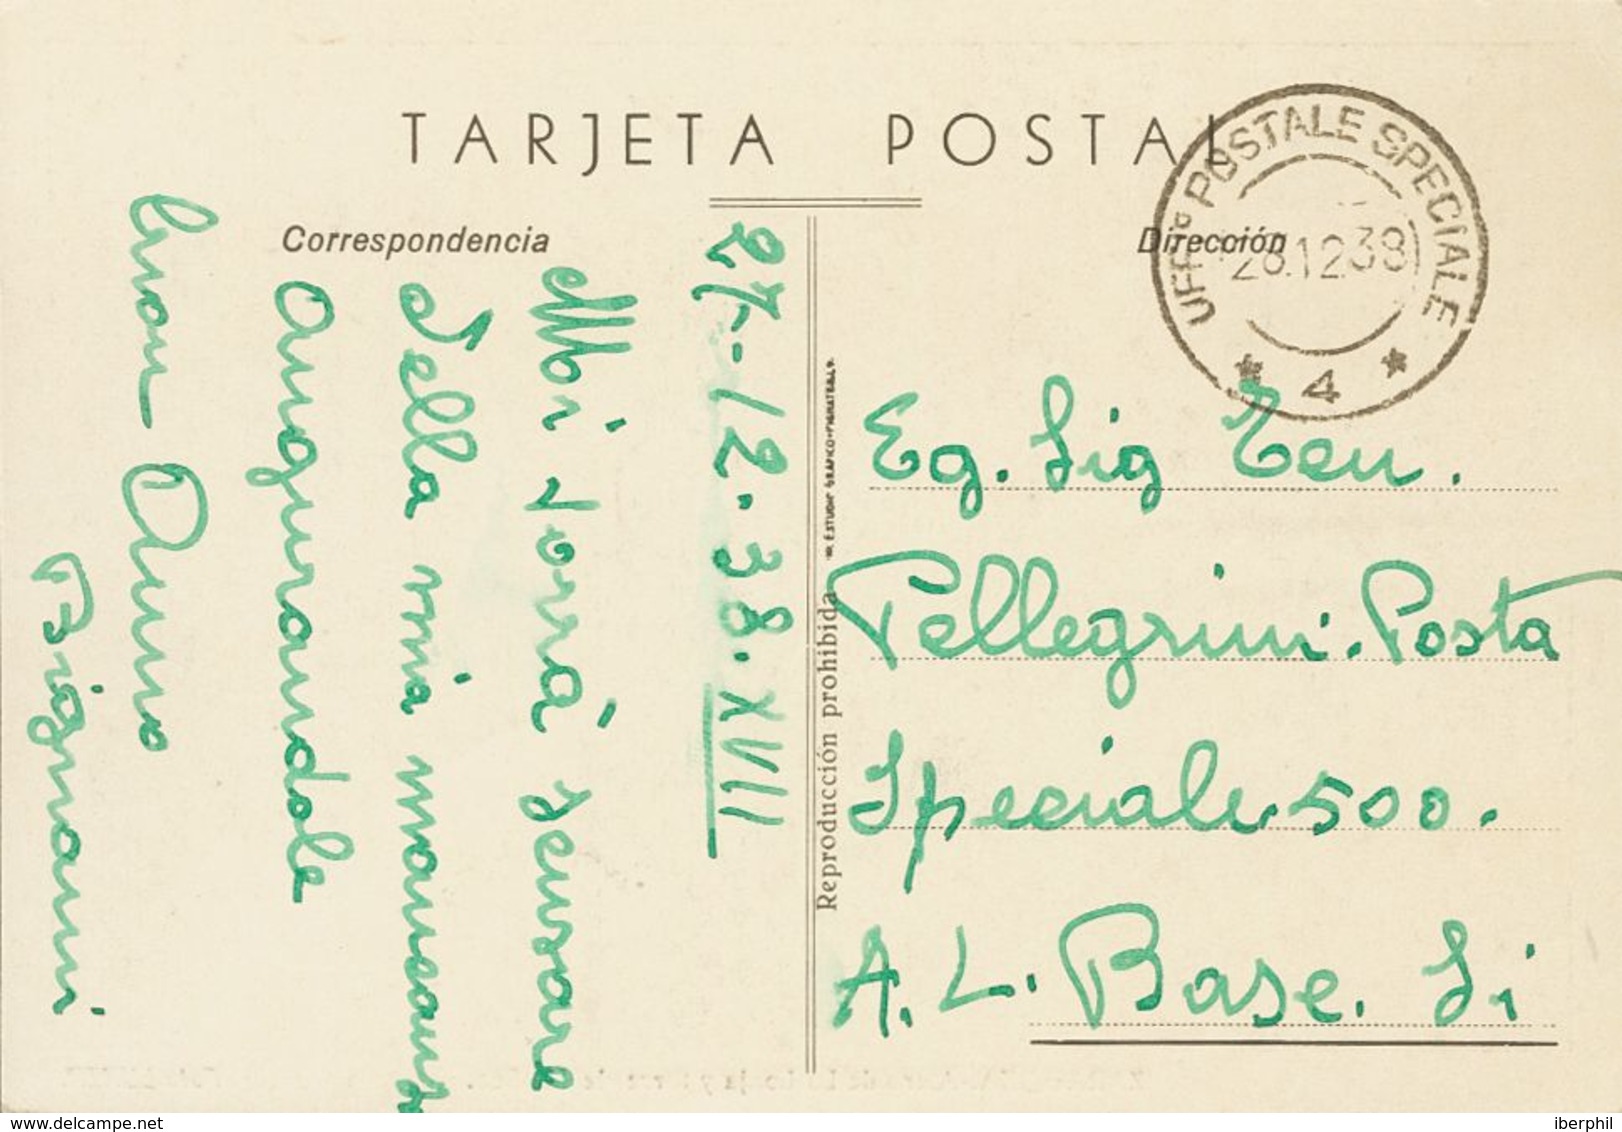 TARJETA POSTAL
Correspondencia
Dirección
UFF° POSTALE SPECIALE
28.12.38
4
27-12.38.XVII
Mi vorrà scusare
della mia mancanza
Augurandole
buon Anno
Bignami
Reproducción prohibida
Eg. Sig Ten.
Pellegrini. Posta
Speciale 500.
A. L. Base. Si
delcampe.net
iberphil